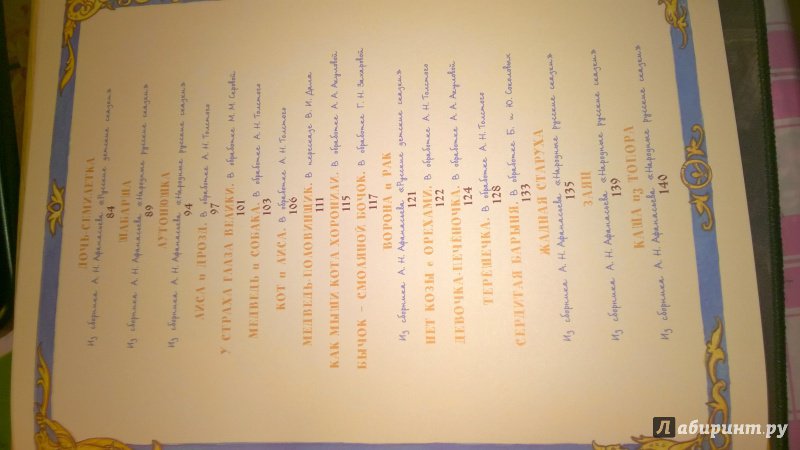 ДОЧЬ-СЕМИЛЕТКА
Из сборника А. Н. Афанасьева «Русские детские сказки»
84
Из сборника А. Н. Афанасьева «Народные русские сказки»
89
ЛУТОНЮШКА
Из сборника А. Н. Афанасьева «Народные русские сказки»
94
ЛИСА и ДРОЗД. В обработке А. Н. Толстого
97
У СТРАХА ГЛАЗА ВЕЛИКИ. В обработке М. М. Серовой
101
МЕДВЕДЬ и СОБАКА. В обработке А. Н. Толстого
103
КОТ и ЛИСА. В обработке А. Н. Толстого
106
МЕДВЕДЬ-ПОЛОВИНЩИК. В пересказе В. И. Даля
111
КАК МЫШИ КОТА ХОРОНИЛИ. В обработке А. А. Акуловой
115
БЫЧОК – СМОЛЯНОЙ БОЧОК. В обработке Г. Н. Захаровой
117
ВОРОНА и РАК
Из сборника А. Н. Афанасьева «Русские детские сказки»
121
НЕТ КОЗЫ с ОРЕХАМИ. В обработке А. Н. Толстого
122
ДЕВОЧКА-ПЕЧЁНОЧКА. В обработке А. А. Акуловой
124
ТЕРЁШЕЧКА. В обработке А. Н. Толстого
128
СЕРДИТАЯ БАРЫНЯ. В обработке Б. и Ю. Соколовых
133
ЖАДНАЯ СТАРУХА
Из сборника А. Н. Афанасьева «Народные русские сказки»
135
ЗАЯЦ
Из сборника А. Н. Афанасьева «Народные русские сказки»
139
КАША из ТОПОРА
Из сборника А. Н. Афанасьева «Народные русские сказки»
140
Лабиринт.ру